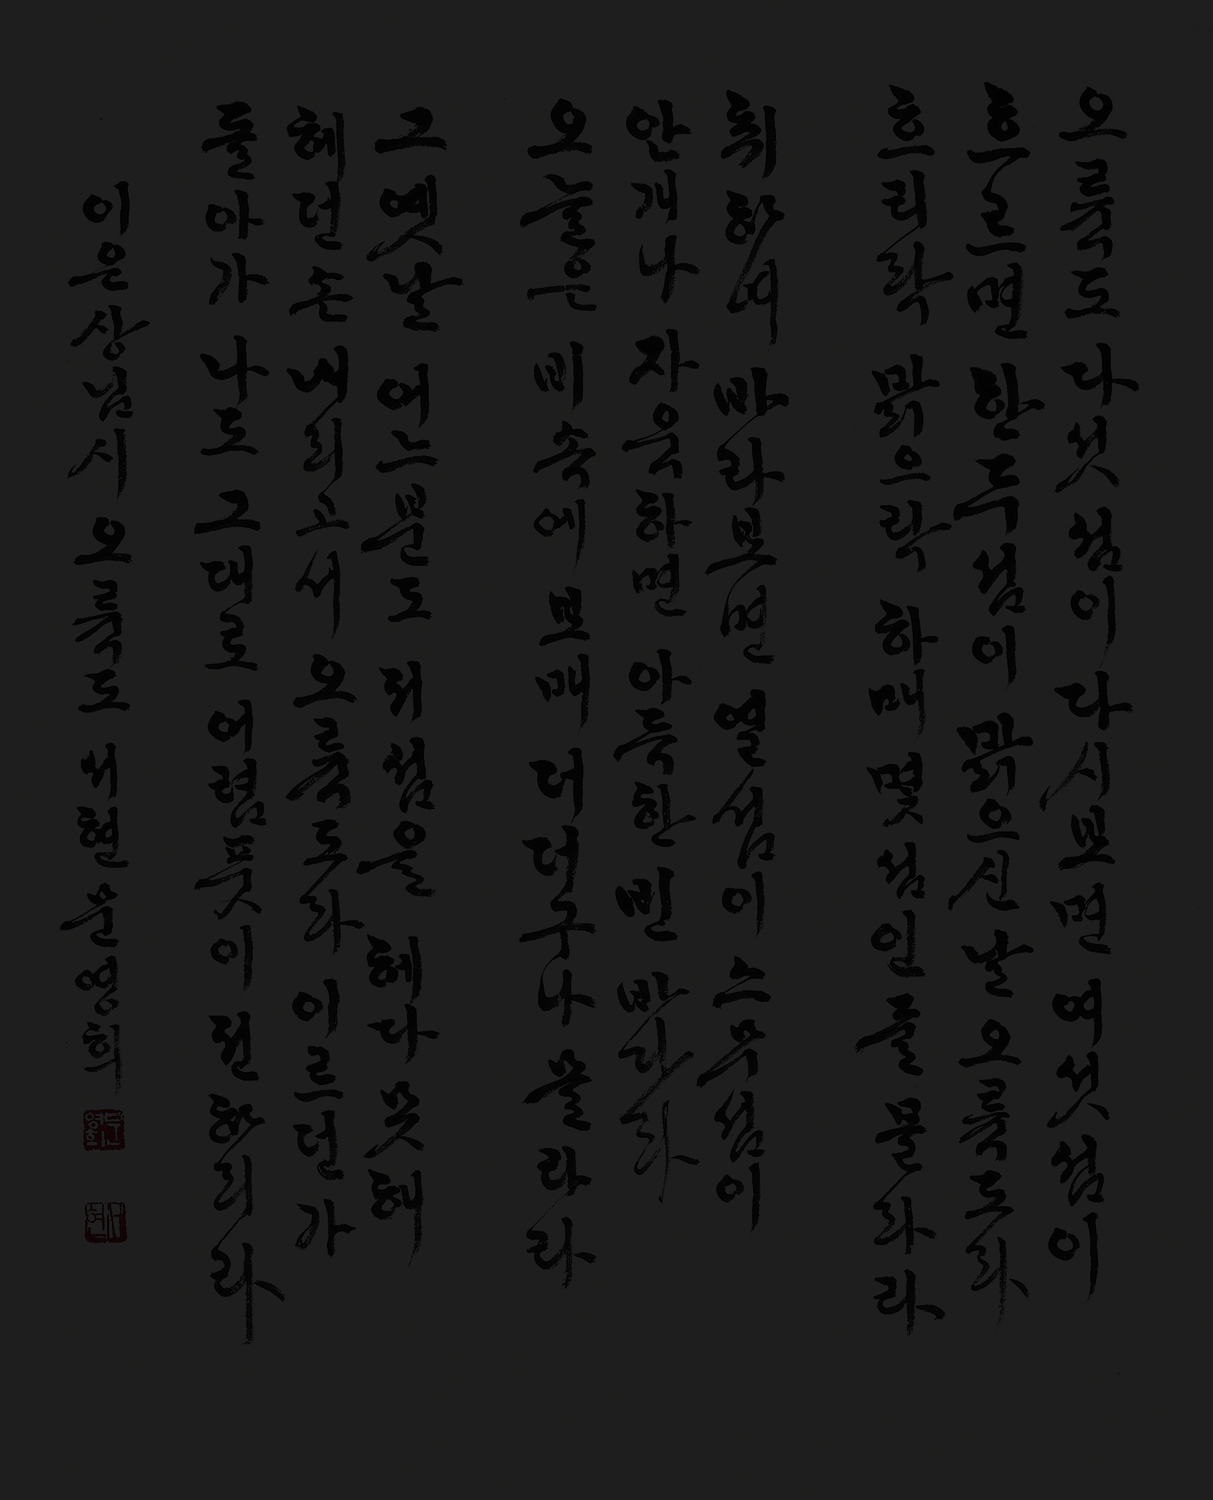 오륙도 다섯 섬이 다시 보면 여섯 섬이
흐르면 한두 섬이 맑으신 날 오륙도라
흐리락 맑으락 하매 몇 섬인 줄 몰라라
취하여 바라보면 열 섬이 스무 섬이
안개나 자욱하면 아득한 빈 바다라
오늘은 비 속에 보매 더더구나 몰라라
그 옛날 어느 분도 저 섬을 헤다 못해
헤던 손 내리고서 오륙도라 이르던가
돌아가 나도 그대로 어렴풋이 전하리라
이은상님 시 오륙도 서현 문영희